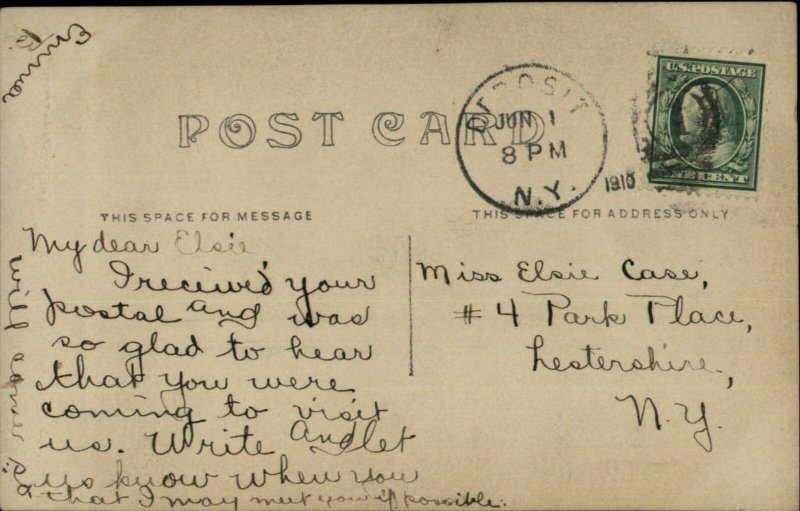 Emma
POST CARD
DEPOSIT
JUN 1
8 PM
N.Y.
1910
U.S. POSTAGE
ONE CENT
THIS SPACE FOR MESSAGE
THIS SPACE FOR ADDRESS ONLY
My dear Elsie
I recived your
postal and was
so glad to hear
that you were
coming to visit
us. Write and let
us know when you
will come
that I may meet you if possible.
Miss Elsie Case,
# 4 Park Place,
Lestershire,
N.Y.